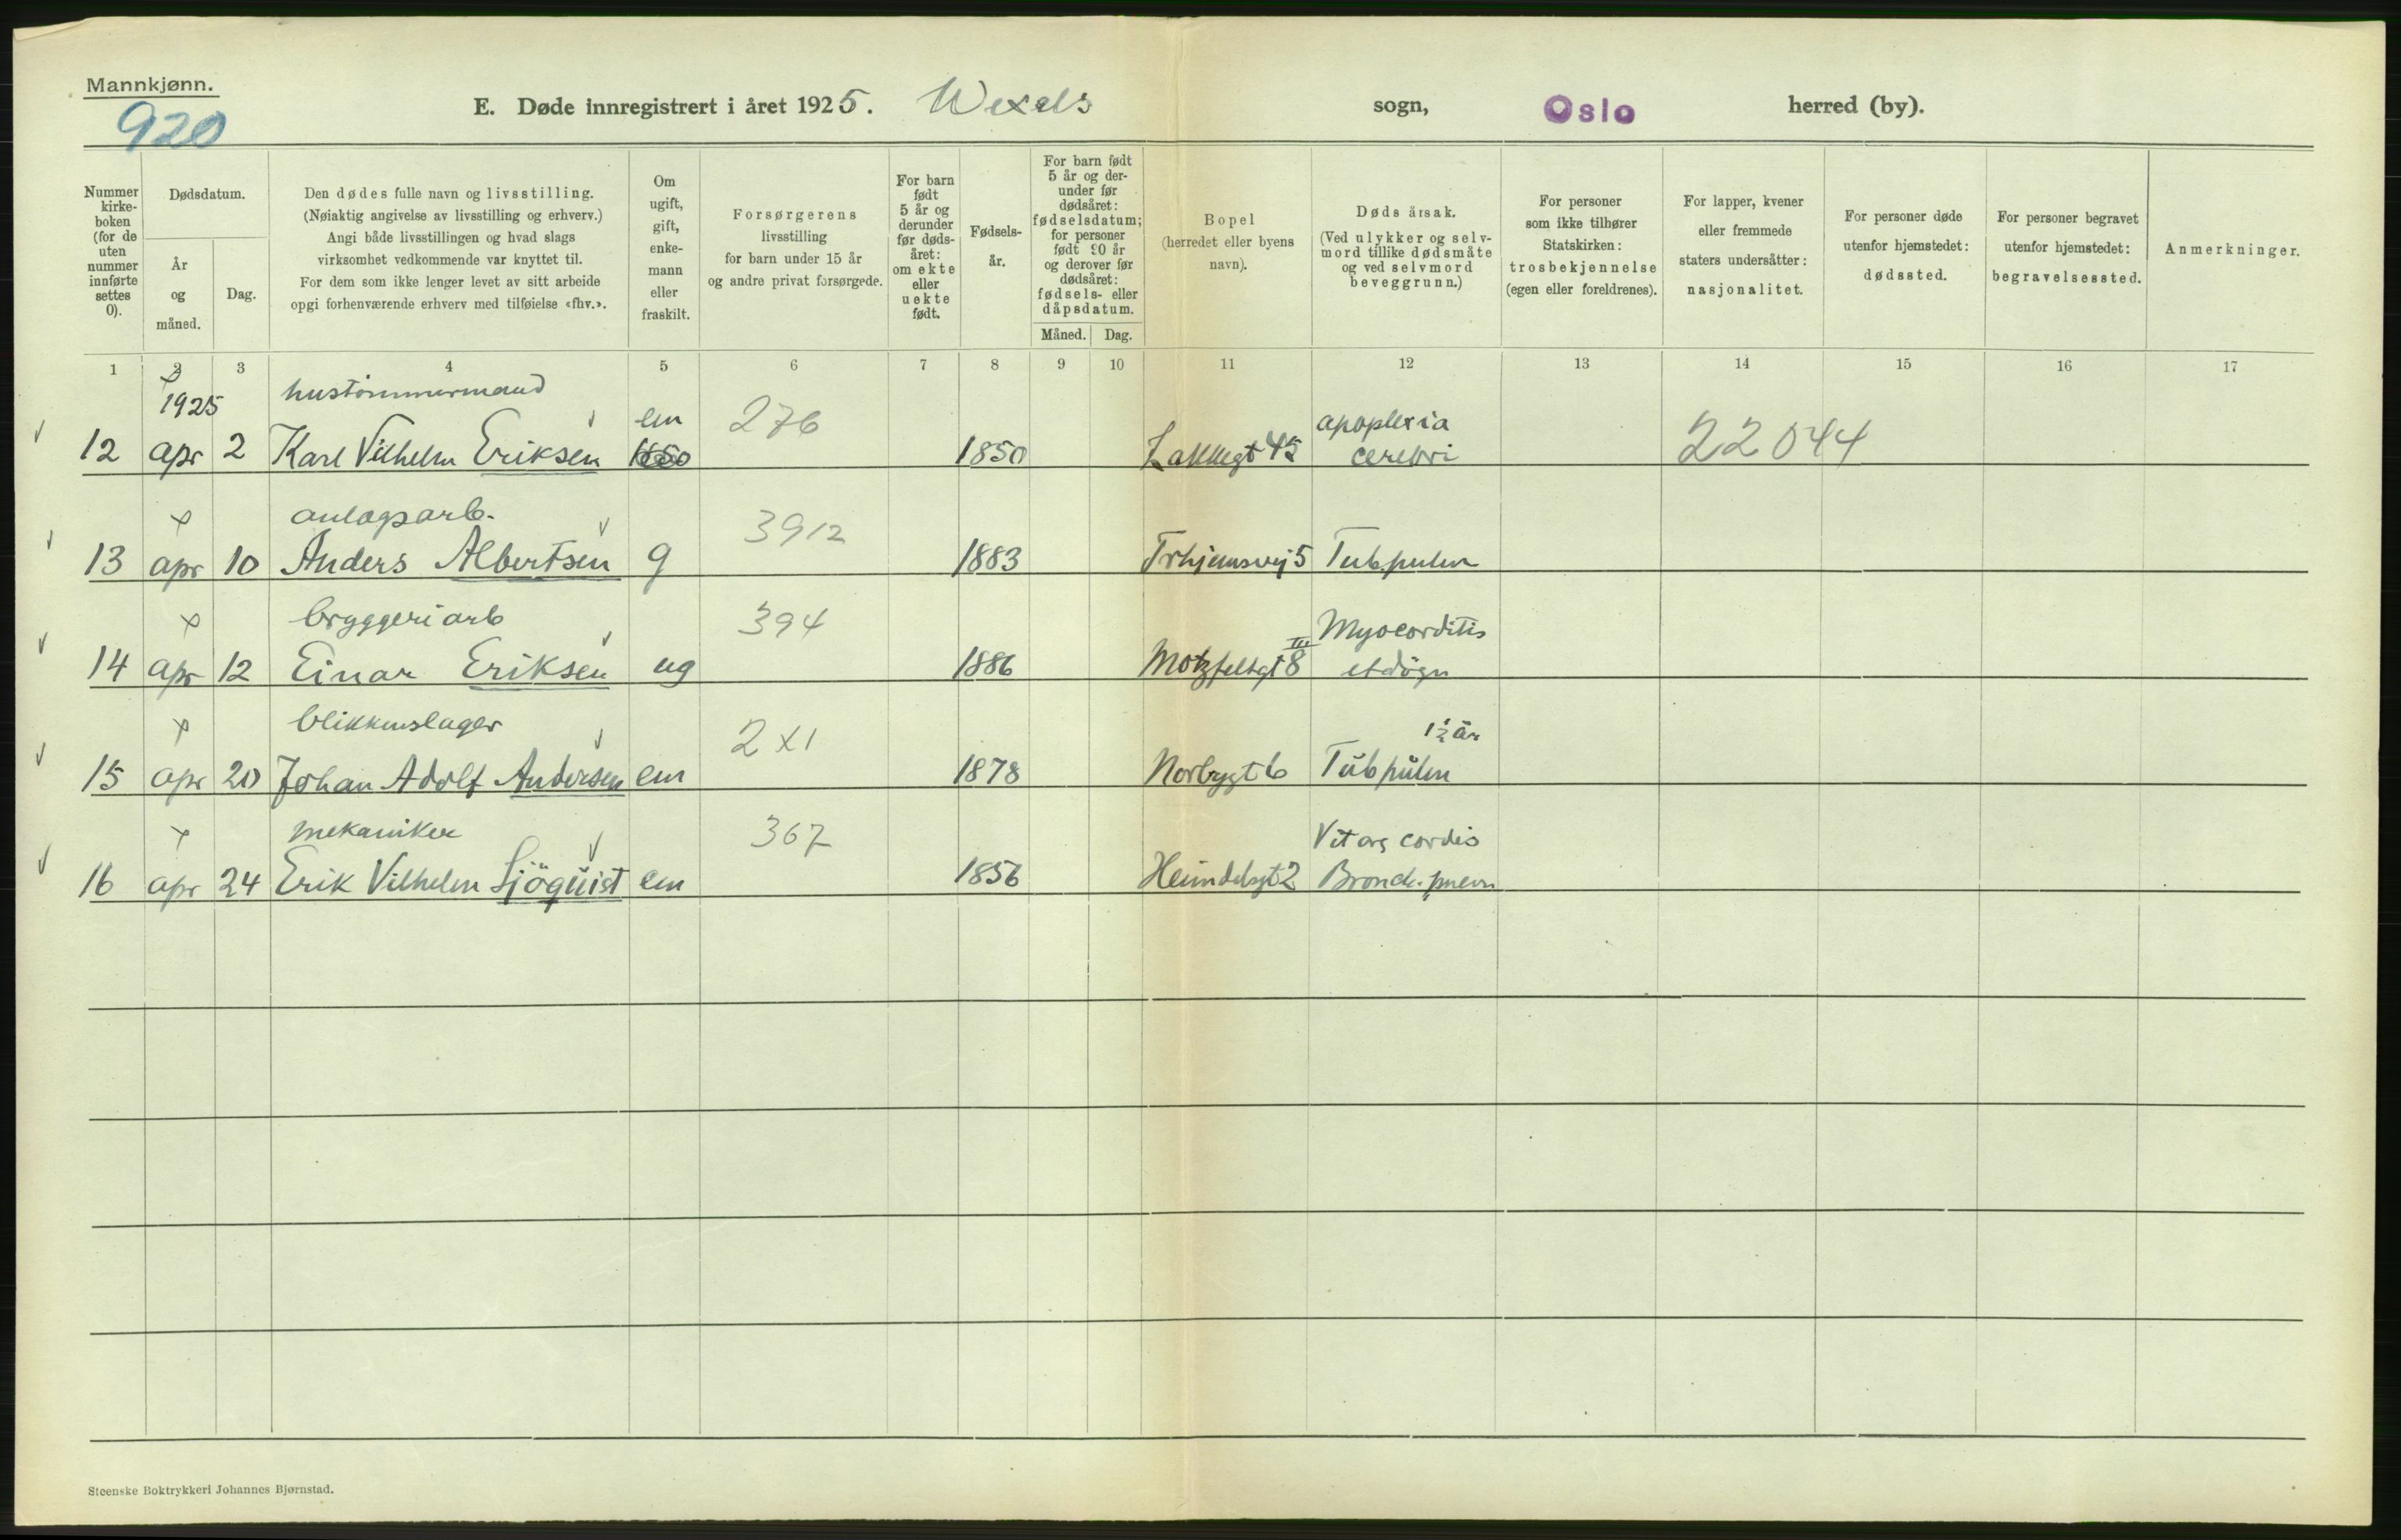 Mannkjønn.
920
E. Døde innregistrert i året 1925. Wexels sogn, Oslo herred (by).
Nummer
kirke-
boken
(for de
uten
nummer
innførte
settes
0).
Dødsdatum.
År
og
måned.
Dag.
Den dødes fulle navn og livsstilling.
(Nøiaktig angivelse av livsstilling og erhverv.)
Angi både livsstillingen og hvad slags
virksomhet vedkommende var knyttet til.
For dem som ikke lenger levet av sitt arbeide
opgi forhenværende erhverv med tilføielse «fhv.».
Om
ugift,
gift,
enke-
mann
eller
fraskilt.
Forsørgerens
livsstilling
for barn under 15 år
og andre privat forsørgede.
For barn
født
5 år og
derunder
før døds-
året:
om ekte
eller
uekte
født.
Fødsels-
år.
For barn født
5 år og der-
under før
dødsåret:
fødselsdatum;
for personer
født 90 år
og derover før
dødsåret:
fødsels- eller
dåpsdatum.
Måned. Dag.
Bopel
(herredet eller byens
navn).
Dødsårsak.
(Ved ulykker og selv-
mord tillike dødsmåte
og ved selvmord
beveggrunn.)
For personer
som ikke tilhører
Statskirken:
trosbekjennelse
(egen eller foreldrenes).
For lapper, kvener
eller fremmede
staters undersåtter:
nasjonalitet.
For personer døde
utenfor hjemstedet:
dødssted.
For personer begravet
utenfor hjemstedet:
begravelsessted.
Anmerkninger.
1 2 3 4 5 6 7 8 9 10 11 12 13 14 15 16 17
1925 hustømmermand em 276 apoplexia
12 apr 2 Karl Vilhelm Eriksen 1850 Lakkegt 45 cerebri 22044
x anlægsarb. 3912
13 apr 10 Anders Albertsen g 1883 Trhjemsvej 5 Tub. pulm
x bryggeriarb 394 III Myocorditis
14 apr 12 Einar Eriksen ug 1886 Motzfeltgt 8 et døgn
x blikkenslager 2x1 1½ år
15 apr 20 Johan Adolf Andersen em 1878 Norbygt 6 Tub pulm
x mekaniker 367 Vit org cordis
16 apr 24 Erik Vilhelm Sjöquist em 1856 Heimdalsgt 2 Bronch. pnevm
Steenske Boktrykkeri Johannes Bjørnstad.